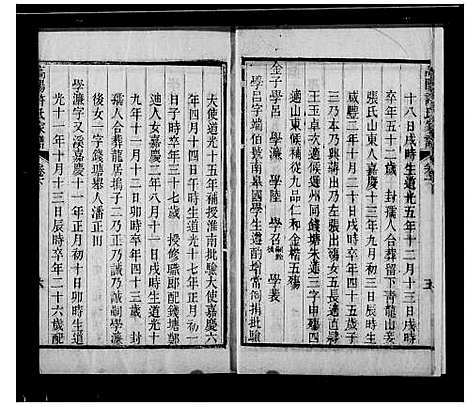 高陽許氏家譜 卷下
十八日戌時生道光五年十二月十三日戌時
卒年五十二歲 封孺人合葬留下青龍山妾
張氏山東人嘉慶十三年九月初三辰時生
咸豐三年十月十一日戌時卒年四十五歲子
三乃本乃興嗣出乃左張出殤女五長適直隸
王玉卓次適候選州同錢塘朱蓮三字申殤四
適山東候補從九品仁和金楷五殤
金子學呂 學濂 學陸 學召 學裴
學呂字端伯號南皋國學生遵酌增常例捐批驗
五
大使道光十五年補授淮南批驗大使嘉慶六
年四月十四日午時生道光十七年正月初一
日子時卒年三十七歲 授修職郎配錢塘鄭
迪人女嘉慶二年八月十一日戌時生道光十
九年十一月十二日卯時卒年四十三歲 封
孺人合葬龍居塢子二乃正乃誠乃誠嗣學濂
後女一字錢塘縣人潘正川
學濂字又溪嘉慶十一年正月初十日卯時生道
光十一年十月十三日辰時卒年二十六歲配
高陽許氏家譜 卷下
六